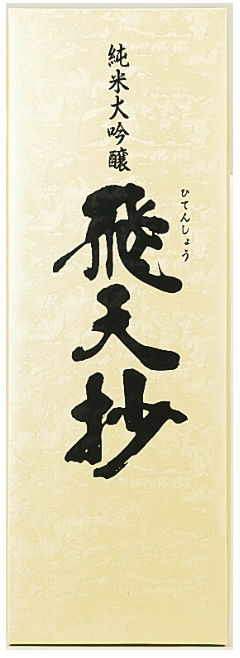 純米大吟醸
ひてんしょう
飛天抄